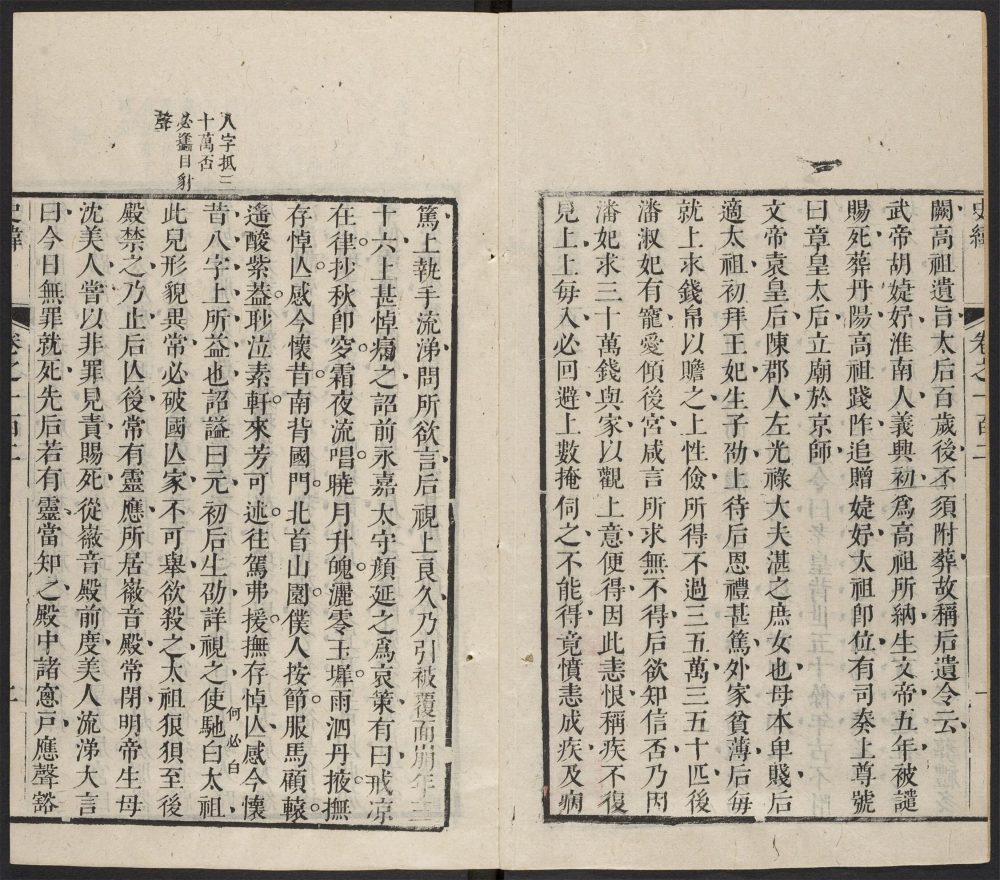 史緯
卷之一百二
闕高祖遺旨太后百歲後不須附葬故稱后遺令云
武帝胡婕妤淮南人義興初爲高祖所納生文帝五年被譴
賜死葬丹陽高祖踐阼追贈婕妤太祖卽位有司奏上尊號
曰章皇太后立廟於京師
文帝袁皇后陳郡人左光祿大夫湛之庶女也母本卑賤后
適太祖初拜王妃生子劭上待后恩禮甚篤外家貧薄后每
就上求錢帛以贍之上性儉所得不過三五萬三五十匹後
潘淑妃有寵愛傾後宮咸言所求無不得后欲知信否乃因
潘妃求三十萬錢與家以觀上意便得因此恚恨稱疾不復
見上上每入必回避上數掩伺之不能得竟憤恚成疾及病
篤上執手流涕問所欲言后視上良久乃引被覆面崩年三
十六上甚悼痛之詔前永嘉太守顔延之爲哀策有曰戒凉
在律抄秋卽穸霜夜流唱曉月升魄灑零玉墀雨泗丹掖撫
存悼亾感今懷昔南背國門北首山園僕人按節服馬顧轅
遙酸紫葢眇泣素軒來芳可述往駕弗援撫存悼亾感今懷
昔八字上所益也詔謚曰元初后生劭詳視之使馳白太祖
何必白
此兒形貌異常必破國亾家不可舉欲殺之太祖狼狽至後
殿禁之乃止后亾後常有靈應所居徽音殿常閉明帝生母
沈美人嘗以非罪見責賜死從徽音殿前度美人流涕大言
曰今日無罪就死先后若有靈當知之殿中諸窻戸應聲豁
八字抵三
十萬否
聲
史緯
卷之一百二